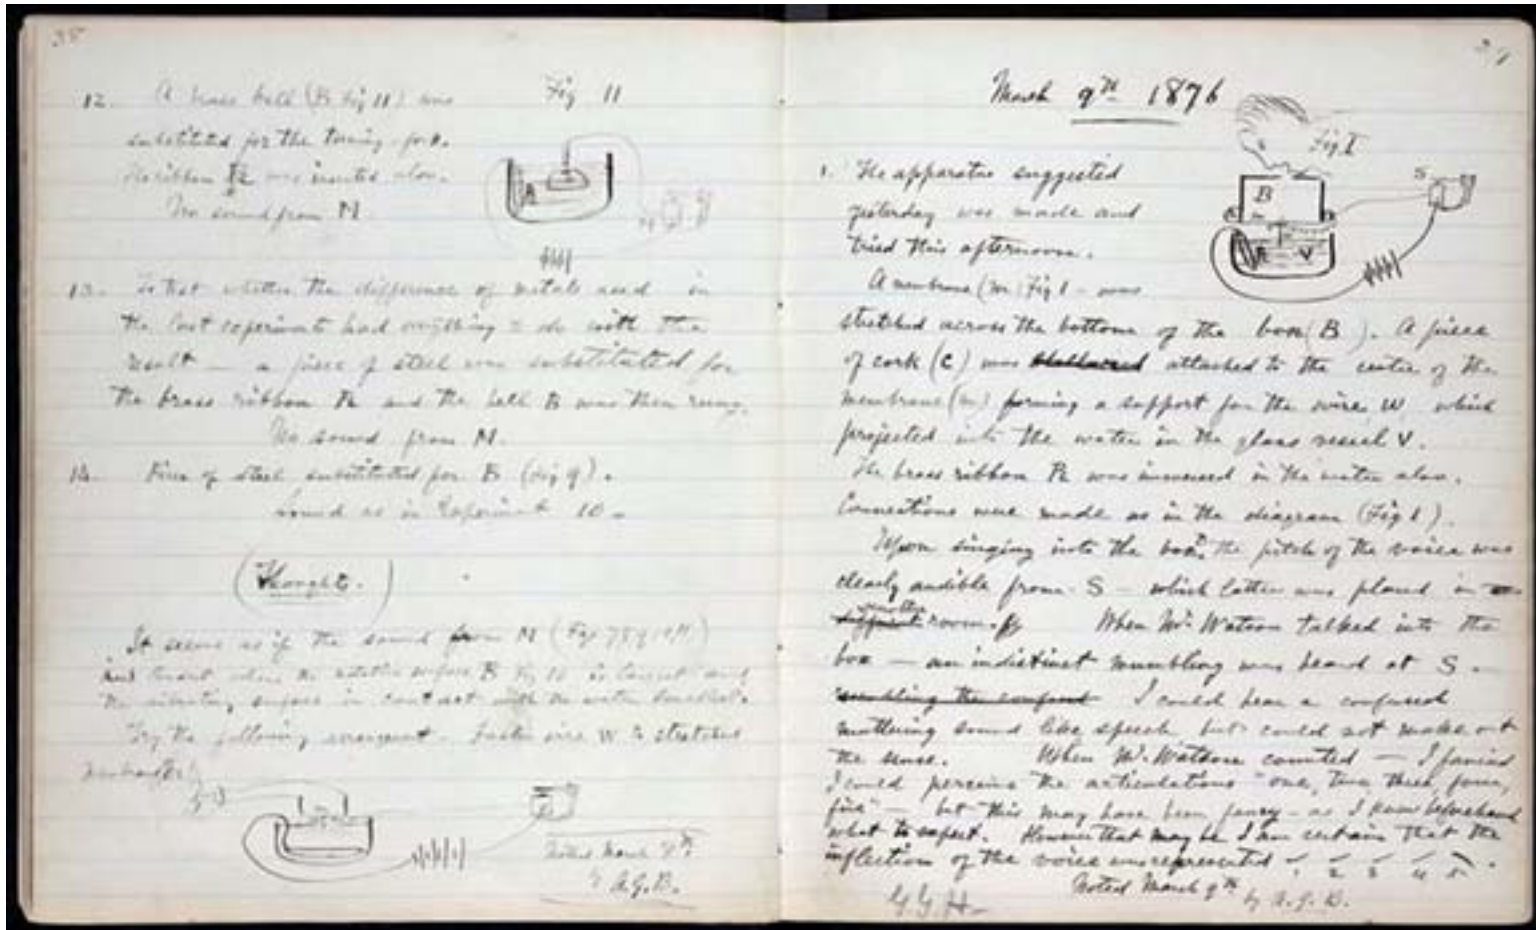 38
12. A brass bell (B Fig 11) was
substituted for the tuning-fork.
The ribbon R was inverted also.
No sound from M.
Fig 11
R
13. To test whether the difference of metals used in
the last experiment had anything to do with the
result — a piece of steel was substituted for
the brass ribbon R and the bell B was then rung.
No sound from M.
14. Piece of steel substituted for B (Fig 9).
Sound as in Experiment 10.
(Thought.)
It seems as if the sound from M
the vibrating surface in contact with the water smallest.
Try the following arrangement. Fasten wire W to stretched
membrane
Noted March 8th
by A.G.B.
March 9th 1876
Fig I
B
S
R
V
1. The apparatus suggested
yesterday was made and
tried this afternoon.
A membrane (m) Fig 1 - was
stretched across the bottom of the box (B). A piece
of cork (C) was attached to the centre of the
membrane (m) forming a support for the wire W which
projected into the water in the glass vessel V.
The brass ribbon R was immersed in the water also.
Connections were made as in the diagram (Fig 1).
Upon singing into the box, the pitch of the voice was
clearly audible from S — which latter was placed in
another
room. When Mr. Watson talked into the
box — an indistinct mumbling was heard at S.
I could hear a confused
muttering sound like speech but could not make out
the sense. When Mr. Watson counted — I fancied
I could perceive the articulations "one, two, three, four,
five" — but this may have been fancy — as I knew beforehand
what to expect. However that may be I am certain that the
inflection of the voice was represented 1 2 3 4 5.
Noted March 9th by A.G.B.
G.G.H.